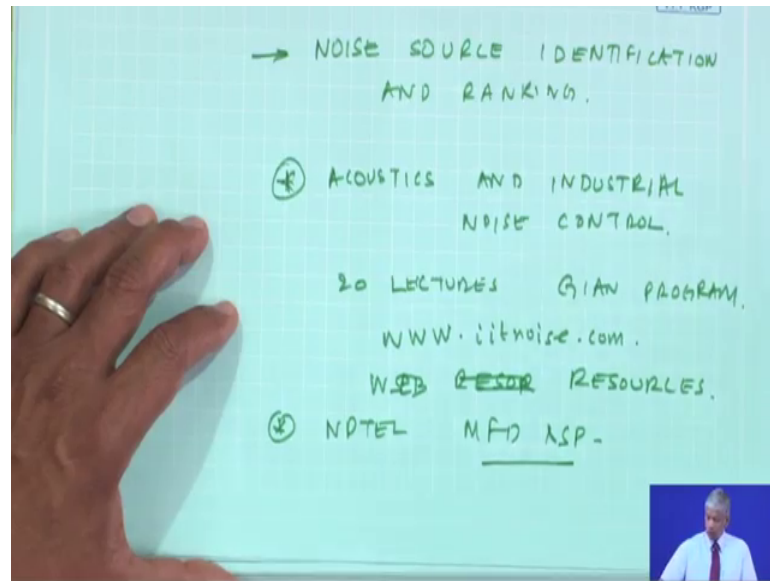 → NOISE SOURCE IDENTIFICATION
AND RANKING.
* ACOUSTICS AND INDUSTRIAL
NOISE CONTROL.
20 LECTURES GIAN PROGRAM.
WWW.iitnoise.com.
WEB RESOURCES.
* NPTEL MFD ASP-